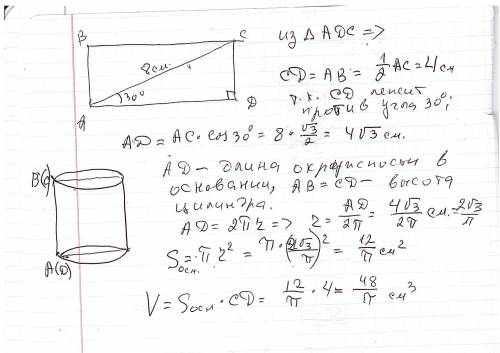 B C
8 см.
30°
A D
из △ ADC =>
CD = AB = 1/2 AC = 4 см
т.к. CD лежит
против угла 30°;
AD = AC · cos 30° = 8 · √3/2 = 4√3 см.
AD – длина окружности в
основании, AB = CD – высота
цилиндра.
AD = 2πr => r = AD/2π = 4√3/2π см. = 2√3/π
Sосн. = πr² = π · (2√3/π)² = 12/π см²
V = Sосн · CD = 12/π · 4 = 48/π см³
B(C)
A(D)